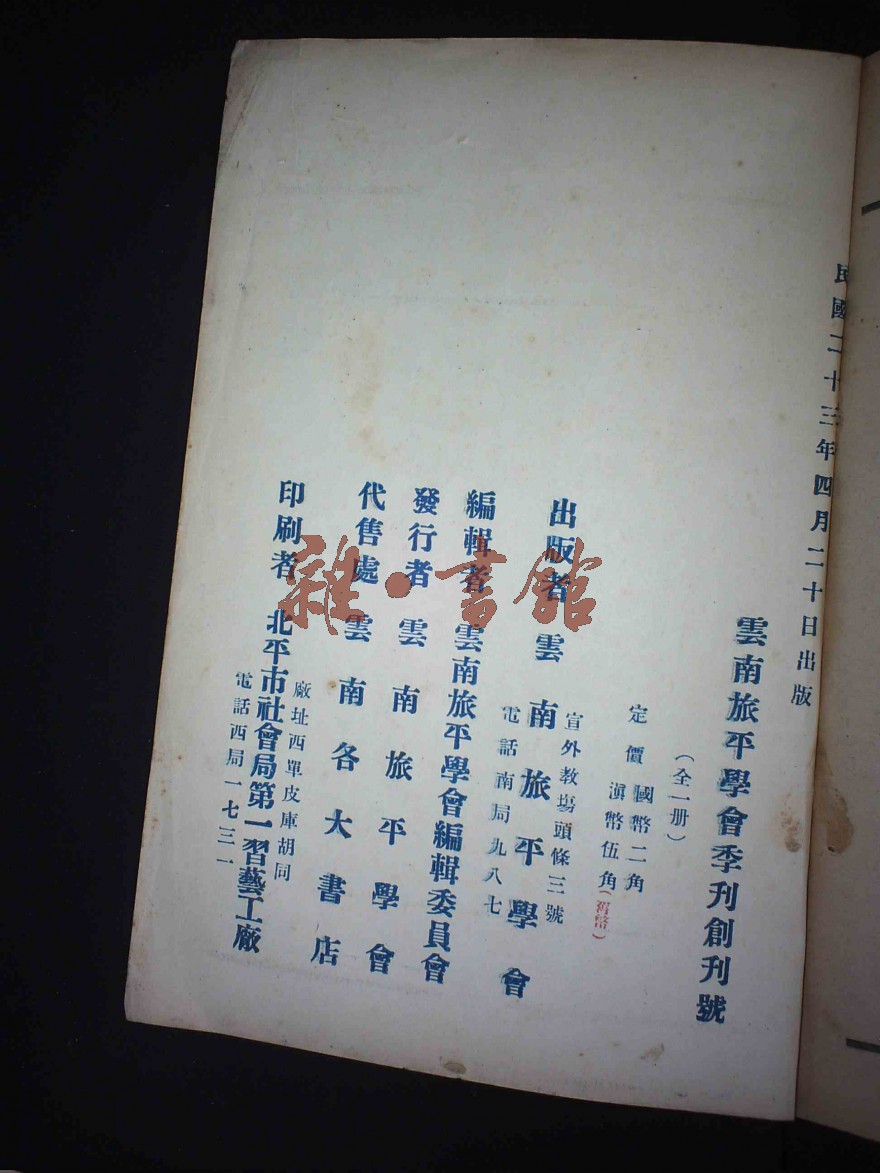 民國二十三年四月二十日出版
雲南旅平學會季刊創刊號
（全一册）
定價國幣二角
滇幣伍角（舊幣）
出版者 雲南旅平學會
宣外教塲頭條三號
電話南局九八七
編輯者 雲南旅平學會編輯委員會
發行者 雲南旅平學會
代售處 雲南各大書店
印刷者 北平市社會局第一習藝工廠
廠址西單皮庫胡同
電話西局一七三一
雜·書館